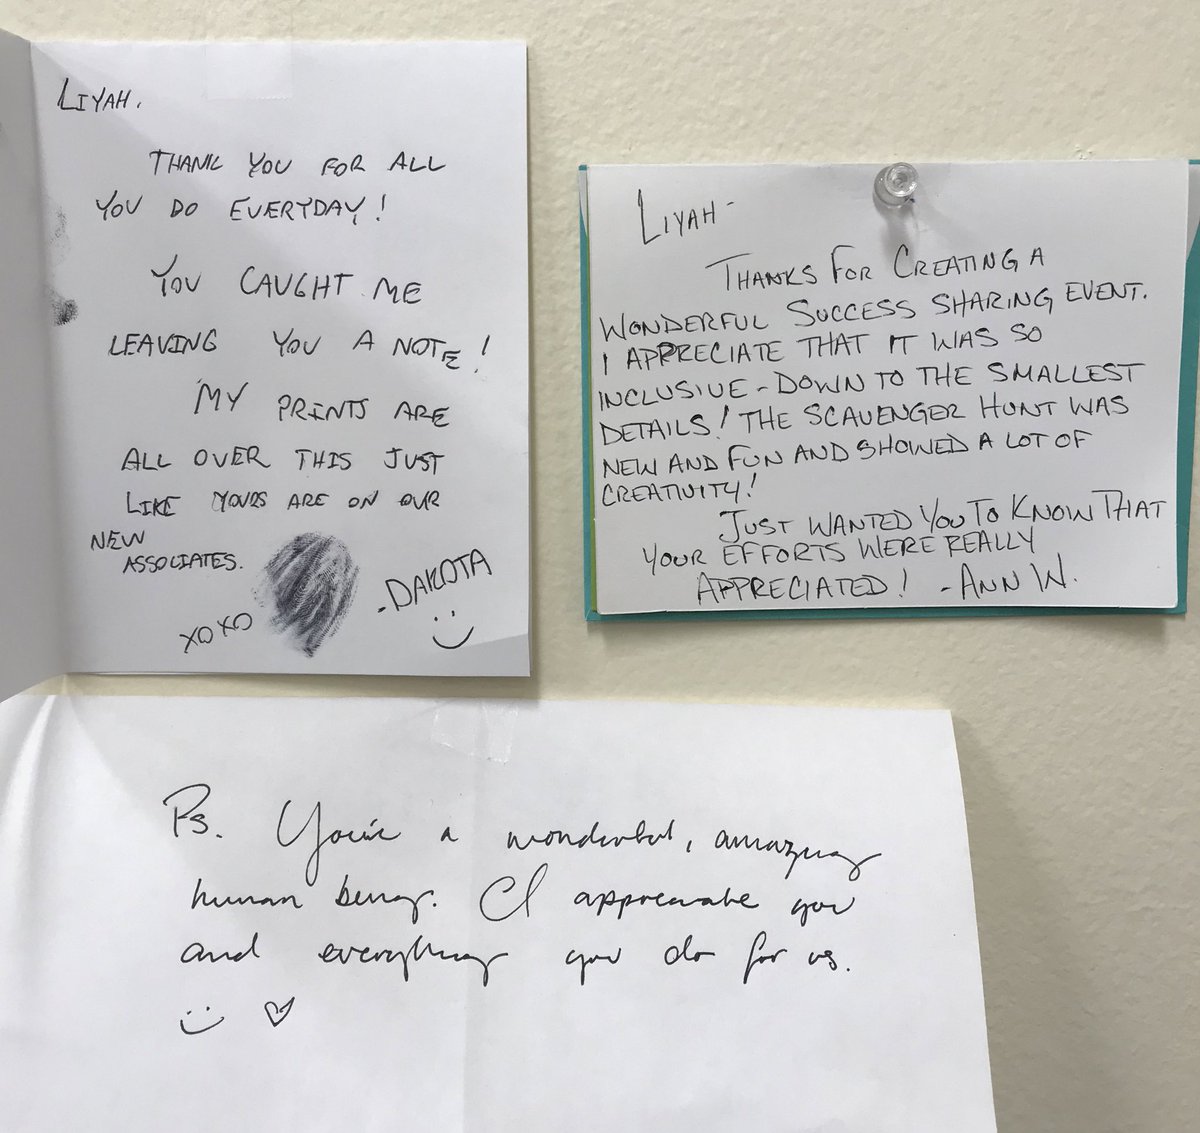 LIYAH,
THANK YOU FOR ALL
YOU DO EVERYDAY!
YOU CAUGHT ME
LEAVING YOU A NOTE!
MY PRINTS ARE
ALL OVER THIS JUST
LIKE YOURS ARE ON OUR
NEW
ASSOCIATES.
XOXO
-DAKOTA
LIYAH-
THANKS FOR CREATING A
WONDERFUL SUCCESS SHARING EVENT.
I APPRECIATE THAT IT WAS SO
INCLUSIVE - DOWN TO THE SMALLEST
DETAILS! THE SCAVENGER HUNT WAS
NEW AND FUN AND SHOWED A LOT OF
CREATIVITY!
JUST WANTED YOU TO KNOW THAT
YOUR EFFORTS WERE REALLY
APPRECIATED! -ANN W.
Ps. You're a wonderful, amazing
human being. I appreciate you
and everything you do for us.